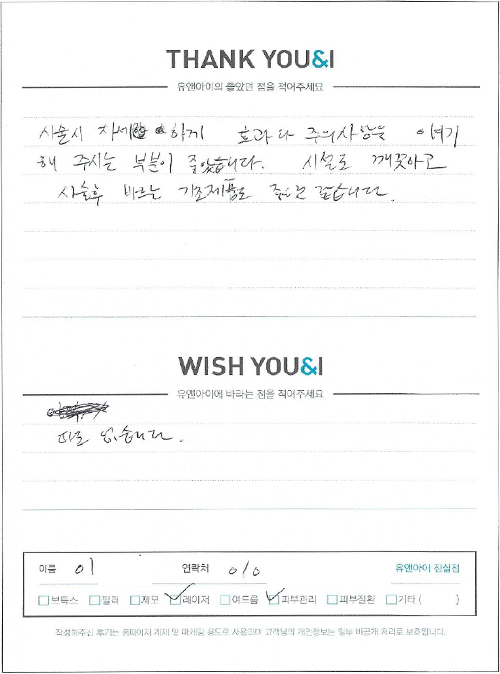 THANK YOU&I
유앤아이의 좋았던 점을 적어주세요
시술시 자세하게 효과나 주의사항을 이야기
해 주시는 부분이 좋았습니다. 시설도 깨끗하고
시술후 바르는 기초제품도 좋은것 같습니다.
WISH YOU&I
유앤아이에 바라는 점을 적어주세요
따로 없습니다.
이름 이 연락처 010 유앤아이 잠실점
보톡스 필러 제모 레이저 여드름 피부관리 피부질환 기타 ( )
작성해주신 후기는 홈페이지 게재 및 마케팅 용도로 사용되며 고객님의 개인정보는 일부 비공개 처리로 보호됩니다.